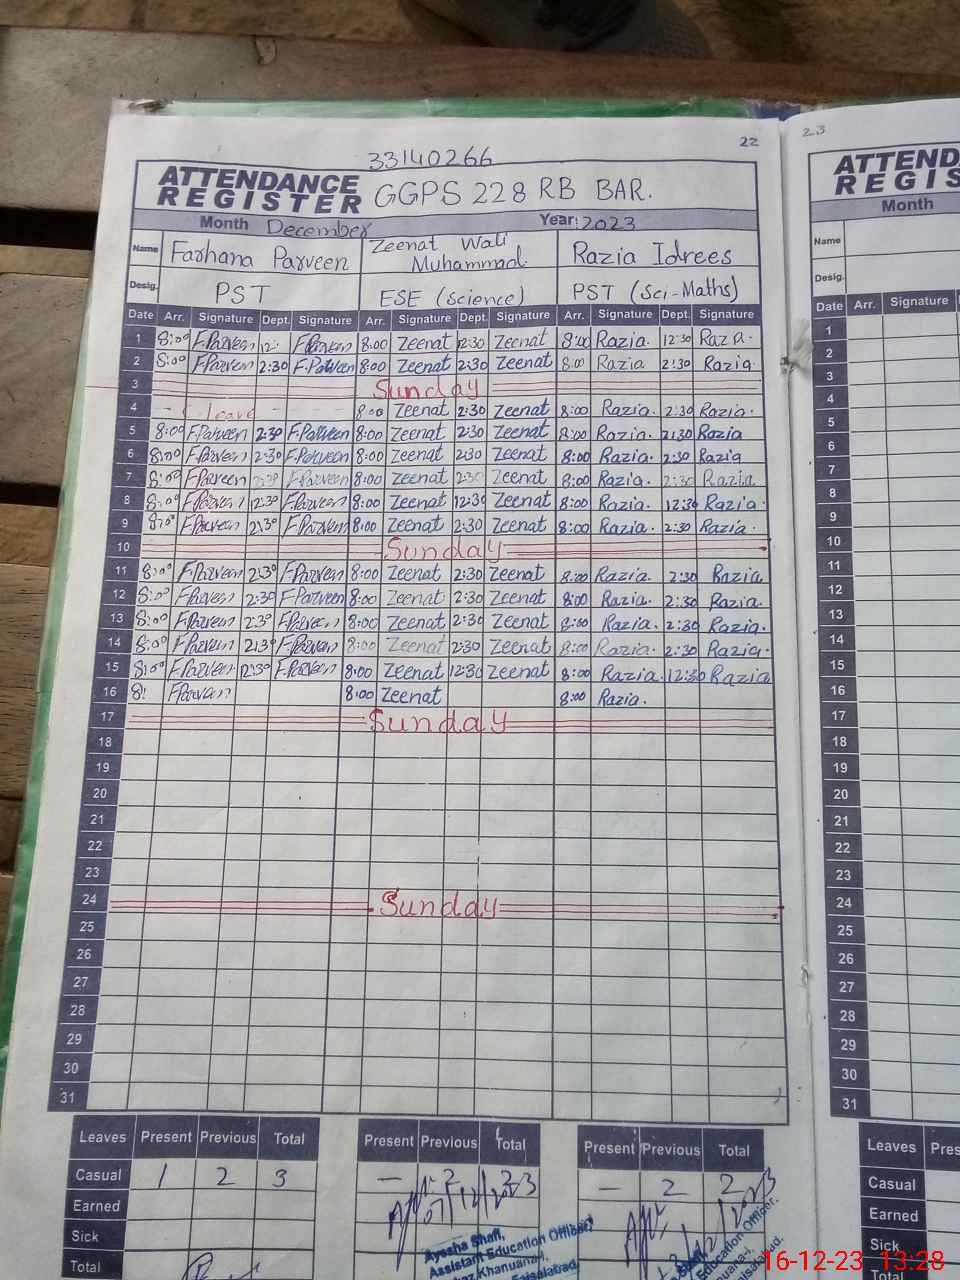 22
23
33140266
ATTENDANCE REGISTER GGPS 228 RB BAR.
Month December Year: 2023
Name Farhana Parveen Zeenat Wali Muhammad Razia Idrees
Desig. PST ESE (Science) PST (Sci-Maths)
Date Arr. Signature Dept. Signature Arr. Signature Dept. Signature Arr. Signature Dept. Signature
1 8:00 F.Parveen 12: F.Parveen 8:00 Zeenat 12:30 Zeenat 8:00 Razia. 12:30 Razia.
2 8:00 F.Parveen 2:30 F.Parveen 8:00 Zeenat 2:30 Zeenat 8:00 Razia 2:30 Razia
3 Sunday
4 - C. leave - - 8:00 Zeenat 2:30 Zeenat 8:00 Razia. 2:30 Razia.
5 8:00 F.Parveen 2:30 F.Parveen 8:00 Zeenat 2:30 Zeenat 8:00 Razia. 2:30 Razia
6 8:00 F.Parveen 2:30 F.Parveen 8:00 Zeenat 2:30 Zeenat 8:00 Razia. 2:30 Razia
7 8:00 F.Parveen 2:30 F.Parveen 8:00 Zeenat 2:30 Zeenat 8:00 Razia. 2:30 Razia
8 8:00 F.Parveen 12:30 F.Parveen 8:00 Zeenat 12:30 Zeenat 8:00 Razia. 12:30 Razia.
9 8:00 F.Parveen 2:30 F.Parveen 8:00 Zeenat 2:30 Zeenat 8:00 Razia. 2:30 Razia.
10 Sunday
11 8:00 F.Parveen 2:30 F.Parveen 8:00 Zeenat 2:30 Zeenat 8:00 Razia. 2:30 Razia
12 8:00 F.Parveen 2:30 F.Parveen 8:00 Zeenat 2:30 Zeenat 8:00 Razia. 2:30 Razia.
13 8:00 F.Parveen 2:30 F.Parveen 8:00 Zeenat 2:30 Zeenat 8:00 Razia. 2:30 Razia.
14 8:00 F.Parveen 2:30 F.Parveen 8:00 Zeenat 2:30 Zeenat 8:00 Razia. 2:30 Razia.
15 8:00 F.Parveen 12:30 F.Parveen 8:00 Zeenat 12:30 Zeenat 8:00 Razia. 12:30 Razia
16 8: F.Parveen 8:00 Zeenat 8:00 Razia.
17 Sunday
18
19
20
21
22
23
24 Sunday
25
26
27
28
29
30
31
Leaves Present Previous Total Present Previous Total Present Previous Total
Casual 1 2 3 - 2 2 - 2 2
Earned
Sick
Total
Ayesha Shafi,
Assistant Education Officer
Khanuana-I,
Faisalabad
Education Officer,
Khanuana-I,
Faisalabad.
ATTEND
REGIS
Month
Name
Desig.
Date Arr. Signature
1
2
3
4
5
6
7
8
9
10
11
12
13
14
15
16
17
18
19
20
21
22
23
24
25
26
27
28
29
30
31
Leaves Pres
Casual
Earned
Sick
Total
16-12-23 13:28